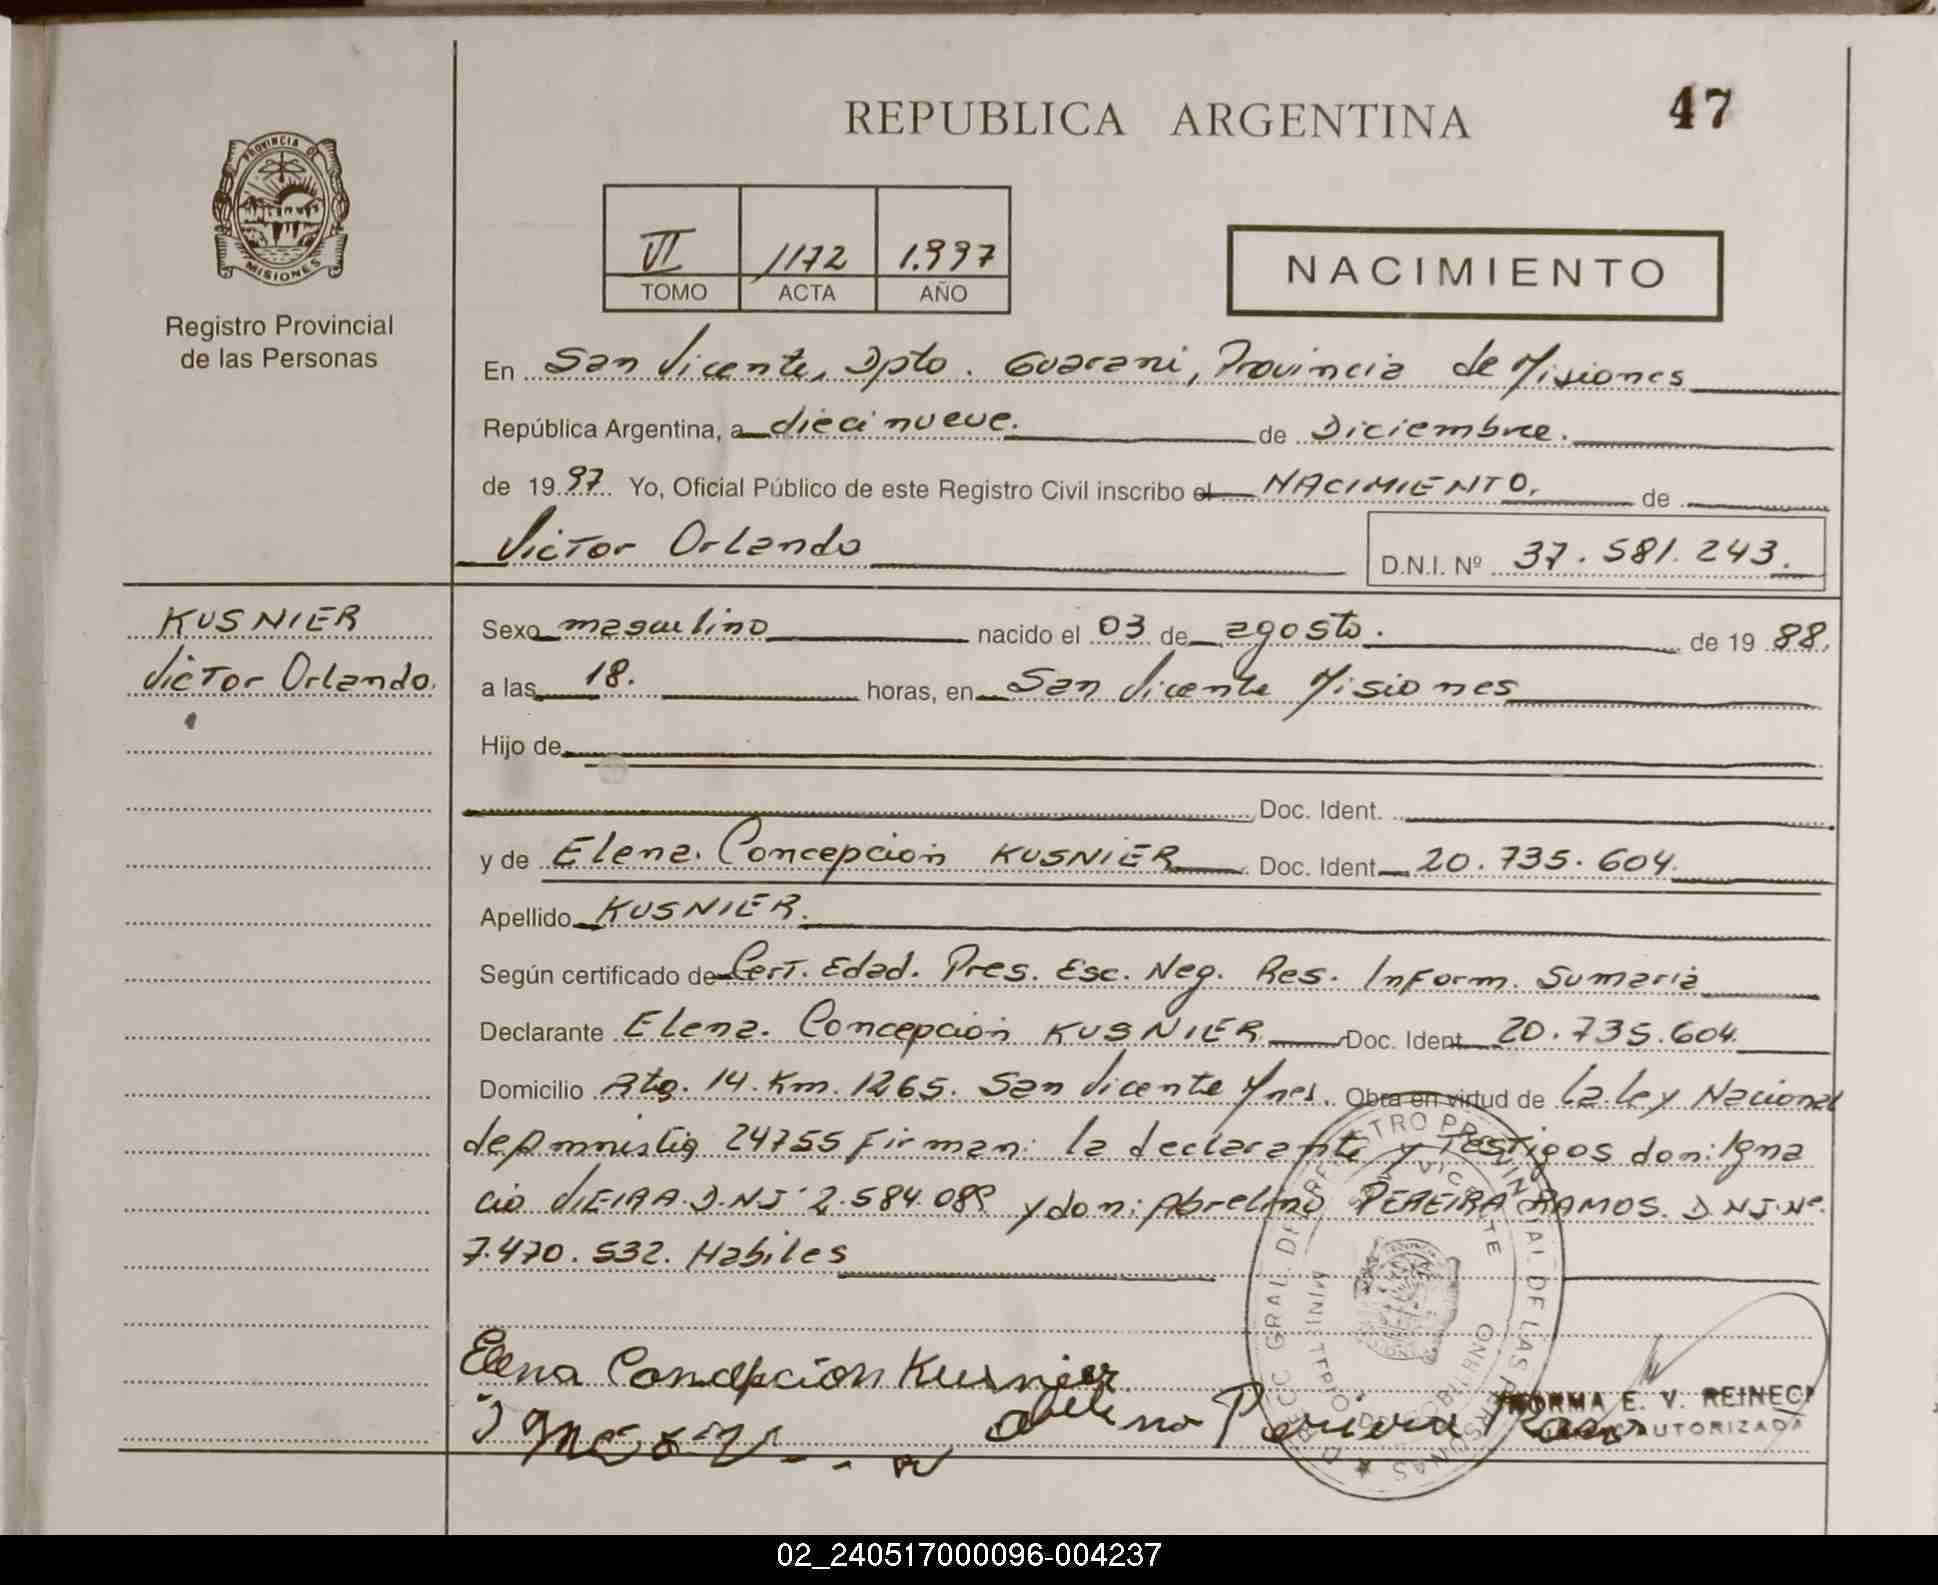 REPUBLICA ARGENTINA
47
PROVINCIA DE
MISIONES
Registro Provincial
de las Personas
VI 1172 1.997
TOMO ACTA AÑO
NACIMIENTO
En San Vicente, Dpto. Guarani, Provincia de Misiones
República Argentina, a dieci nueve. de Diciembre.
de 19 97 Yo, Oficial Público de este Registro Civil inscribo el NACIMIENTO, de
Victor Orlando
D.N.I. Nº 37.581.243.
KUSNIER
Victor Orlando.
Sexo masculino nacido el 03 de agosto. de 19 88.
a las 18. horas, en San Vicente Misiones
Hijo de
Doc. Ident.
y de Elena. Concepcion KUSNIER Doc. Ident 20.735.604.
Apellido KUSNIER.
Según certificado de Cert. Edad. Pres. Esc. Neg. Res. Inform. Sumaria
Declarante Elena. Concepcion KUSNIER Doc. Ident 20.735.604.
Domicilio Rta. 14. Km. 1265. San Vicente Mnes. Obra en virtud de la Ley Nacional
de Amnistia 24755 Firman: la declarante y Testigos don: Igna
cio VIEIRA D.N.I 2.584.089 y don: Abrelino PEREIRA RAMOS. D.N.I. Nº.
7.470.532. Habiles
Elena Concepcion Kusnier
NORMA E. V. REINECK
AUTORIZADA
02_240517000096-004237